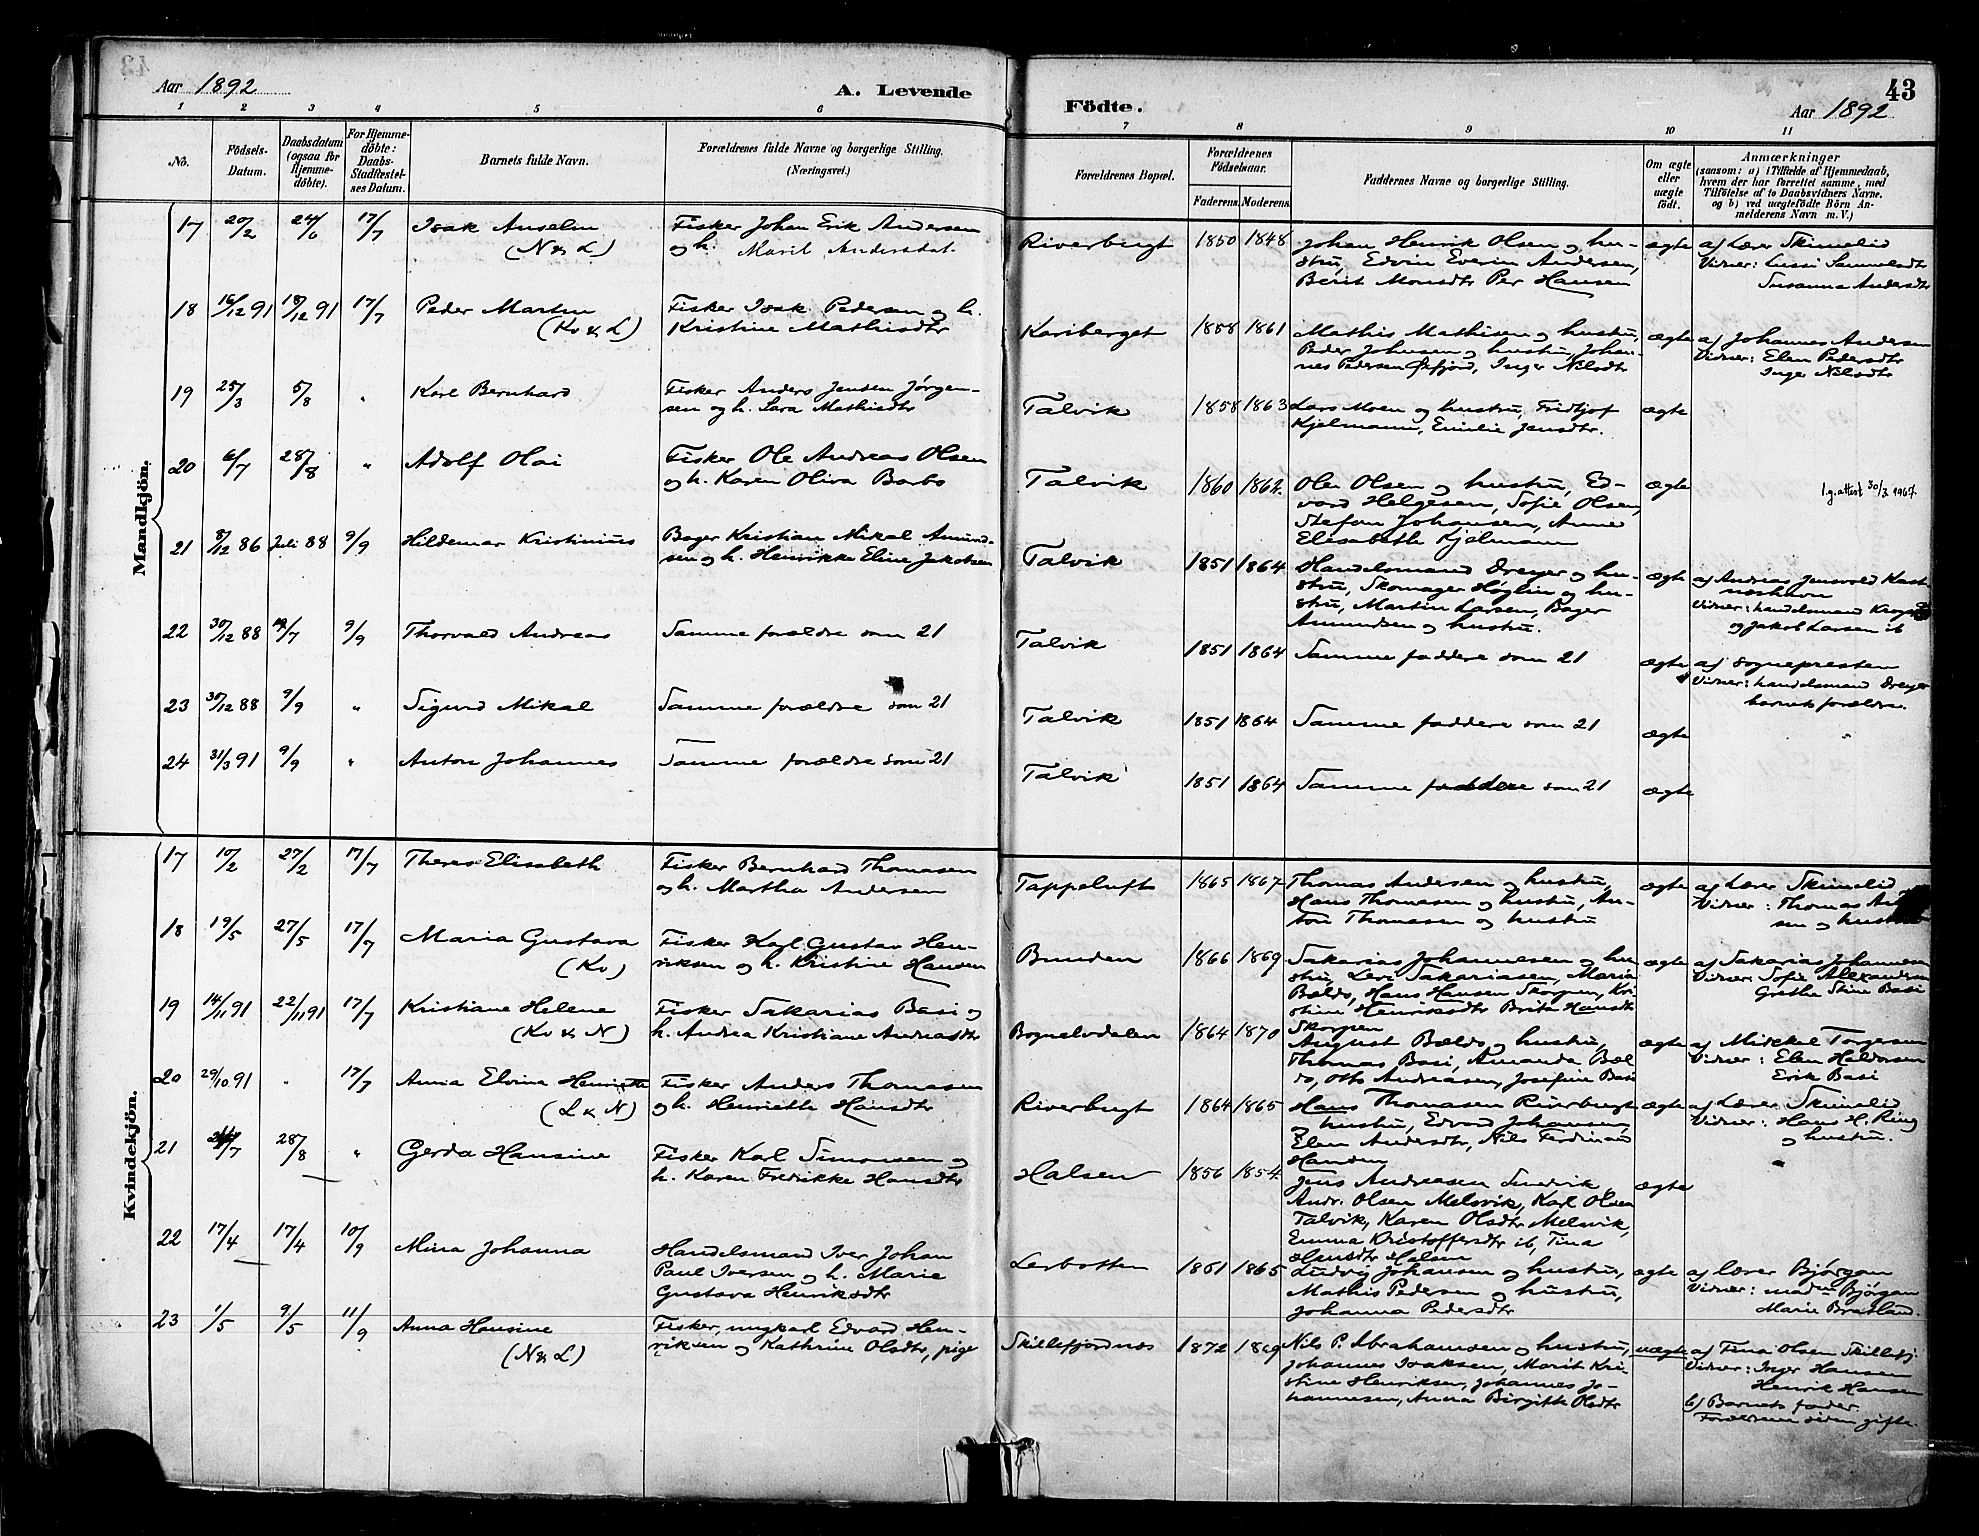 Aar 1892
A. Levende
Födte.
43
Aar 1892
1 2 3 4 5 6 7 8 9 10 11
No.
Födsels-
Datum.
Daabsdatum
(ogsaa for
Hjemme-
döbte).
For Hjemme-
döbte:
Daabs-
Stadfæstel-
ses Datum.
Barnets fulde Navn.
Forældrenes fulde Navne og borgerlige Stilling.
(Næringsvei.)
Forældrenes Bopæl.
Forældrenes
Födselsaar.
Faderens. Moderens.
Faddernes Navne og borgerlige Stilling.
Om ægte
eller
uægte
födt.
Anmærkninger
(saasom: a) i Tilfælde af Hjemmedaab,
hvem der har forrettet samme, med
Tilföielse af to Daabsvidners Navne.
og b) ved uægtefödte Börn An-
melderens Navn m. V.)
Mandkjön.
17 20/2 24/6 17/7 Isak Anselm
(N & L)
Fisker Johan Erik Andersen
og h. Marit Andersdat.
Riverbugt 1850 1848
Johan Henrik Olsen og hu-
stru, Edvin Everin Andersen,
Berit Monsdtr Per Hansen
ægte
a) Lærer Skimelid
Vidner: Lussi Samuelsdtr
Susanna Andersdtr
18 16/12 91 18/12 91 17/7 Peder Martin
(Kv & L)
Fisker Isak Pedersen og h.
Kristine Mathisdtr
Karsberget 1858 1861
Mathis Mathisen og hustru,
Peder Johnsen og hustru, Johan-
nes Pedersen Øxfjord, Inger Nilsdtr
ægte
a) Johannes Andersen
Vidner: Elen Pedersdtr
Inger Nilsdtr
19 25/3 5/8 " Karl Bernhard
Fisker Anders Jensen Jørgen-
sen og h. Sara Mathisdtr
Talvik 1858 1863
Lars Moen og hustru, Fridtjof
Kjelmann, Emilie Jensdtr.
ægte
20 6/7 28/8 " Adolf Olai
Fisker Ole Andreas Olsen
og h. Karen Oliva Barbo
Talvik 1860 1862.
Ole Olsen og hustru, Ed-
vard Helgesen, Sofie Olsen,
Stefan Johansen, Anne
Elisabeth Kjelmann
ægte
l.g. attest 30/3 1967.
21 8/12 86 Juli 88 9/9 Hildemar Kristinius
Bager Kristian Mikal Amund-
sen og h. Henrikke Eline Jakobsen
Talvik 1851 1864
Handelsmand Dreyer og hu-
stru, Skomager Høglin og hu-
stru, Martin Larsen, Bager
Amundsen og hustru.
ægte
a) Andreas Jensvold
Vidner: handelsmand
og Jakob Larsen ib
22 30/12 88 /7 9/9 Thorvald Andreas
Samme forældre som 21
Talvik 1851 1864
Samme faddere som 21
ægte
a) Sognepresten
Vidner: handelsmand Dreyer
barnets forældre.
23 30/12 88 9/9 " Sigurd Mikal
Samme forældre som 21
Talvik 1851 1864
Samme faddere som 21
ægte
24 31/3 91 9/9 " Anton Johannes
Samme forældre som 21
Talvik 1851 1864
Samme faddere som 21
ægte
Kvindekjön.
17 10/2 27/2 17/7 Theres Elisabeth
Fisker Bernhard Thomasen
og h. Martha Andersen
Tappeluft 1865 1867
Thomas Andersen og hustru,
Hans Thomasen og hustru, An-
ton Thomasen og hustru
ægte
a) Lærer Skimelid
Vidner: Thomas
sen og hustru
18 19/5 27/5 17/7 Maria Gustava
(Kv)
Fisker Karl Gustav Hen-
riksen og h. Kristine Hansen
Bunden 1866 1869
Sakarias Johannesen og hu-
stru, Levi Sakariasen, Maria
Bældo, Hans Hansen Skorpen, Kri-
stine Henriksdtr Brita Hansdtr
Skorpen
ægte
a) Sakarias Johannesen
Vidner: Sofie Alexandersen
Grethe Stine Basi
19 14/11 91 22/11 91 17/7 Kristiane Helene
(Kv & N)
Fisker Sakarias Basi og
h. Andrea Kristiane Andreasdtr
Bognelvdalen 1864 1870
August Bældo og hustru,
Thomas Basi, Amanda Bæl-
do, Otto Andreasen, Josefine Basi
ægte
a) Mickkel Torgersen
Vidner: Elen Haldorsen
Erik Basi
20 29/10 91 " 17/7 Anna Elvina Henriette
(L & N)
Fisker Anders Thomasen
og h. Henriette Hansdtr
Riverbugt 1864 1865
Hans Thomasen Riverbugt
og hustru, Edvard Johansen,
Elen Andersdtr, Nils Ferdinand
Hansen
ægte
a) Lærer Skimelid
Vidner: Hans H. Ring
og hustru.
21 /7 28/8 " Gerda Hansine
Fisker Karl Simonsen og
h. Karen Fredrikke Hansdtr
Halsen 1856 1854.
Jens Andreasen Sandvik,
Andr. Olsen Melsvik, Karl Olsen
Talvik, Karen Olsdtr Melsvik,
Emma Kristoffersdtr ib, Tina
Hansdtr Halsen
ægte
22 17/4 17/4 10/9 Mina Johanna
Handelsmand Iver Johan
Paul Iversen og h. Marie
Gustava Henriksdtr
Lerbotten 1861 1865
Ludvig Johansen og hustru,
Mathis Pedersen og hustru,
Johanna Pedersdtr
ægte
a) lærer Bjørgan
Vidner: mad. Bjørgan
Marie Bratland.
23 1/5 9/5 11/9 Anna Hansine
(N & L)
Fisker, ungkarl Edvard Hen-
riksen og Kathrine Olsdtr, pige
Skillefjordnes 1872 1869
Nils P. Abrahamsen og hustru,
Johannes Isaksen, Marit Kri-
stine Henriksen, Johannes Jo-
hannesen, Anna Birgitte Olsdtr
uægte
a) Tina Olsen Skillefj.
Vidner: Inger Hansen
Henrik Hansen
b) Barnets fader.
Forældrene siden gifte.